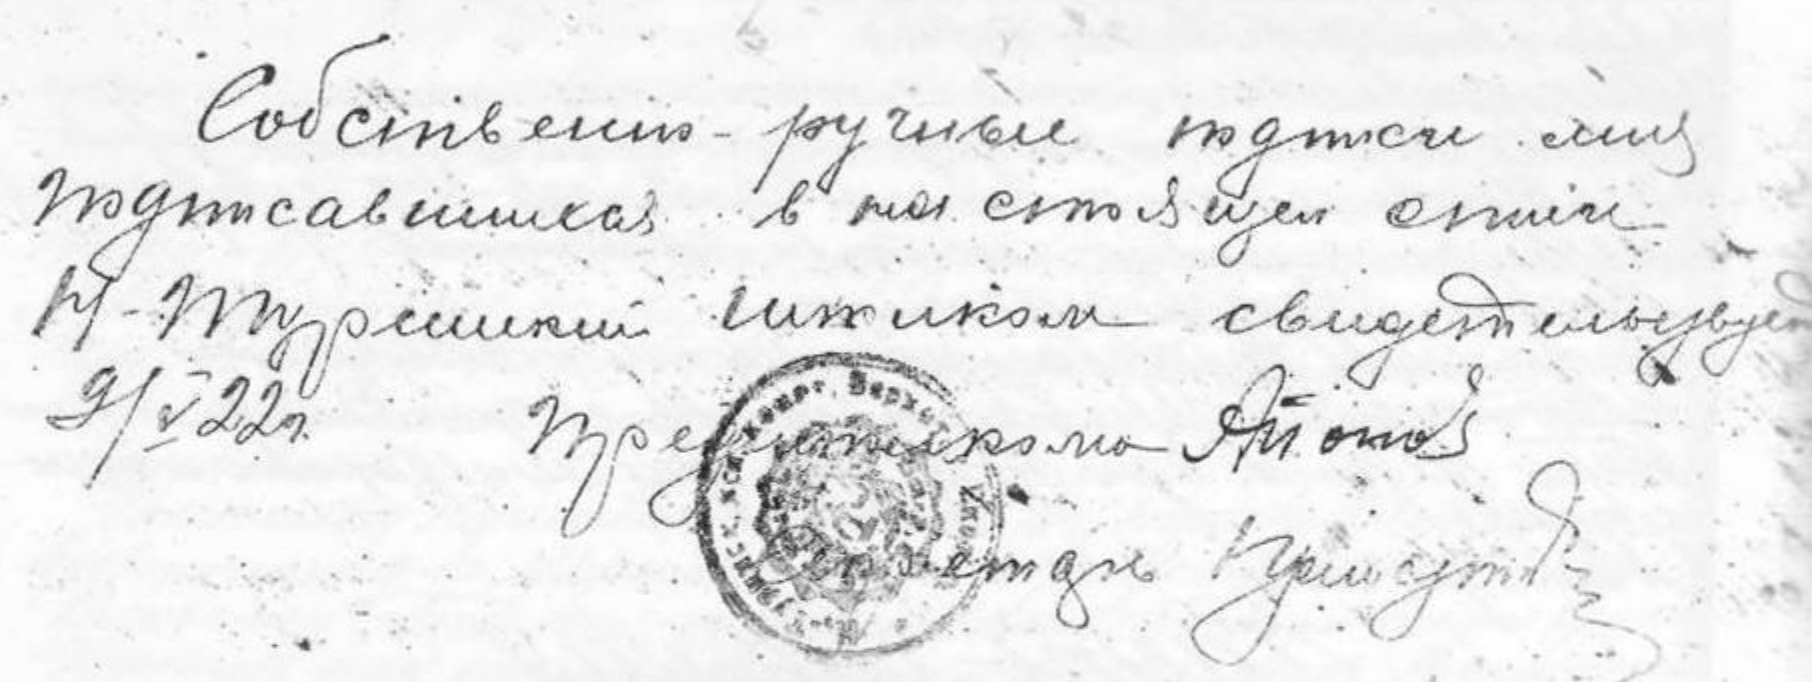 Собственно-ручные подписи лиц
подписавшихся в настоящем списке
Н-Туринский исполком свидетельствует
9/V 22 г. Предисполкома
Секретарь